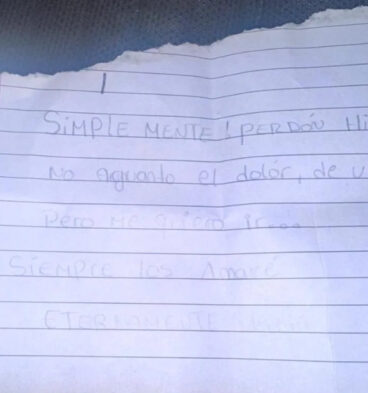 SiMPLE MENTE! PERDÓN Hi
No AgUanto el dolór, de v
Pero ME qUiero ir....
SiEMPrE los AmAré
ETERNAMENTE